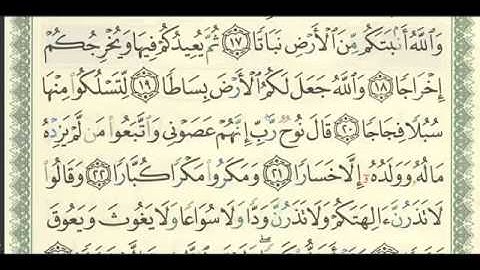 وَاللَّهُ أَنبَتَكُم مِّنَ الْأَرْضِ نَبَاتًا ١٧ ثُمَّ يُعِيدُكُمْ فِيهَا وَيُخْرِجُكُمْ
إِخْرَاجًا ١٨ وَاللَّهُ جَعَلَ لَكُمُ الْأَرْضَ بِسَاطًا ١٩ لِّتَسْلُكُوا مِنْهَا
سُبُلًا فِجَاجًا ٢٠ قَالَ نُوحٌ رَّبِّ إِنَّهُمْ عَصَوْنِي وَاتَّبَعُوا مَن لَّمْ يَزِدْهُ
مَالُهُ وَوَلَدُهُ إِلَّا خَسَارًا ٢١ وَمَكَرُوا مَكْرًا كُبَّارًا ٢٢ وَقَالُوا
لَا تَذَرُنَّ آلِهَتَكُمْ وَلَا تَذَرُنَّ وَدًّا وَلَا سُوَاعًا وَلَا يَغُوثَ وَيَعُوقَ